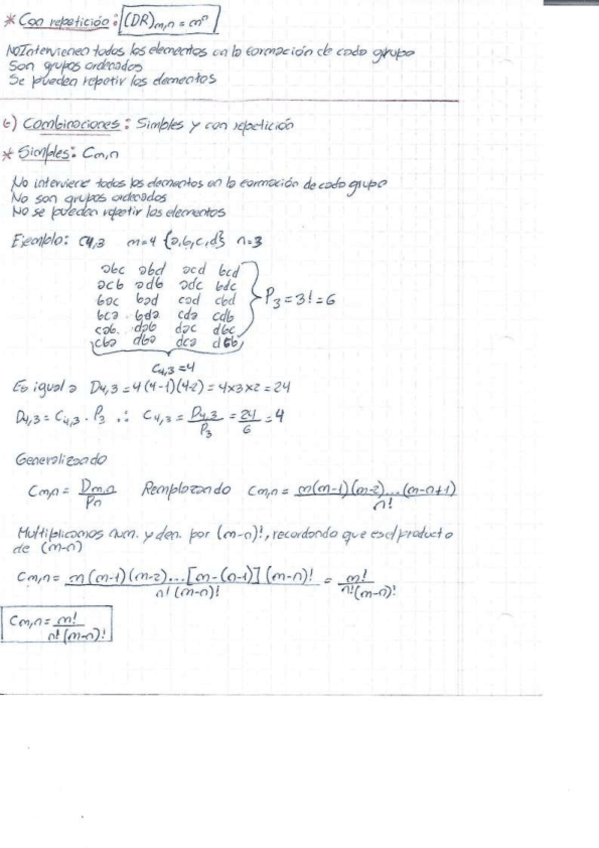 * Con repetición: (DR)m,n = mⁿ
No Intervienen todos los elementos en la formación de cada grupo
Son grupos ordenados
Se pueden repetir los elementos
c) Combinaciones: Simples y con repetición
* Simples: Cm,n
No interviene todos los elementos en la formación de cada grupo
No son grupos ordenados
No se pueden repetir los elementos
Ejemplo: C4,3 m=4 {a,b,c,d} n=3
abc abd acd bcd
acb adb adc bdc
bac bad cad cbd
bca bda cda cdb
cab dab dac dbc
cba dba dca dcb
P3 = 3! = 6
C4,3 = 4
Es igual a D4,3 = 4(4-1)(4-2) = 4x3x2 = 24
D4,3 = C4,3 · P3 ∴ C4,3 = D4,3/P3 = 24/6 = 4
Generalizado
Cm,n = Dm,n/Pn Remplazando Cm,n = m(m-1)(m-2)...(m-n+1)/n!
Multiplicamos num. y den. por (m-n)!, recordando que es el producto
de (m-n)
Cm,n = m(m-1)(m-2)...[m-(n-1)](m-n)!/n!(m-n)! = m!/n!(m-n)!
Cm,n = m!/n!(m-n)!